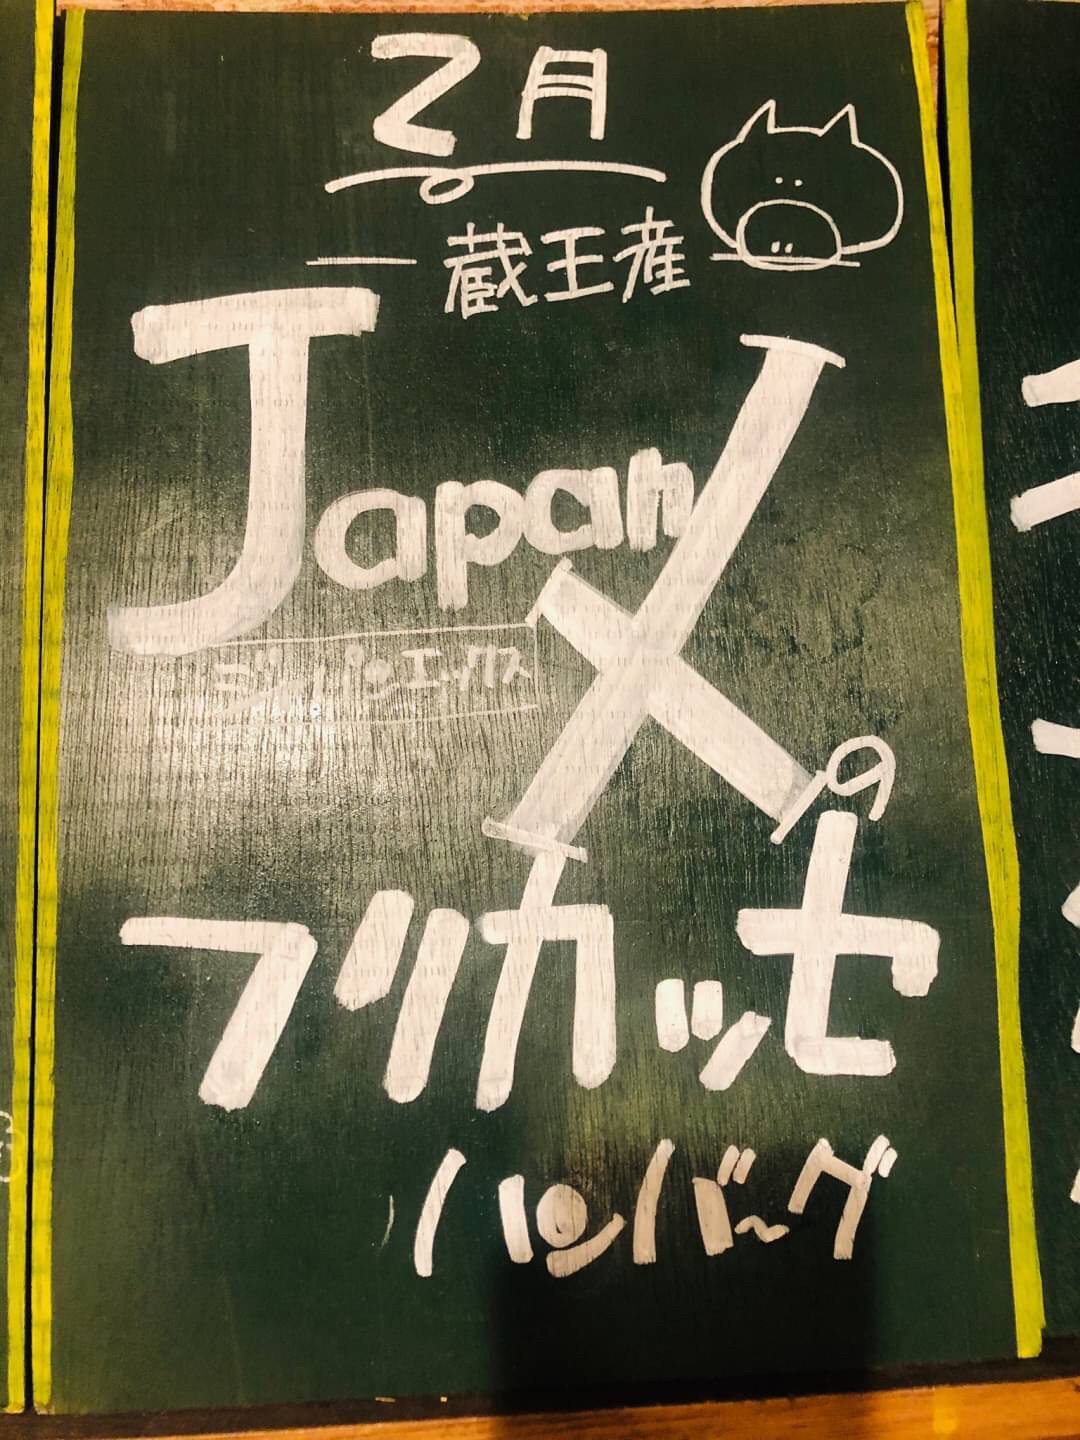 2月
蔵王産
JapanX
ジャパンエックス
の
フリカッセ
ハンバーグ